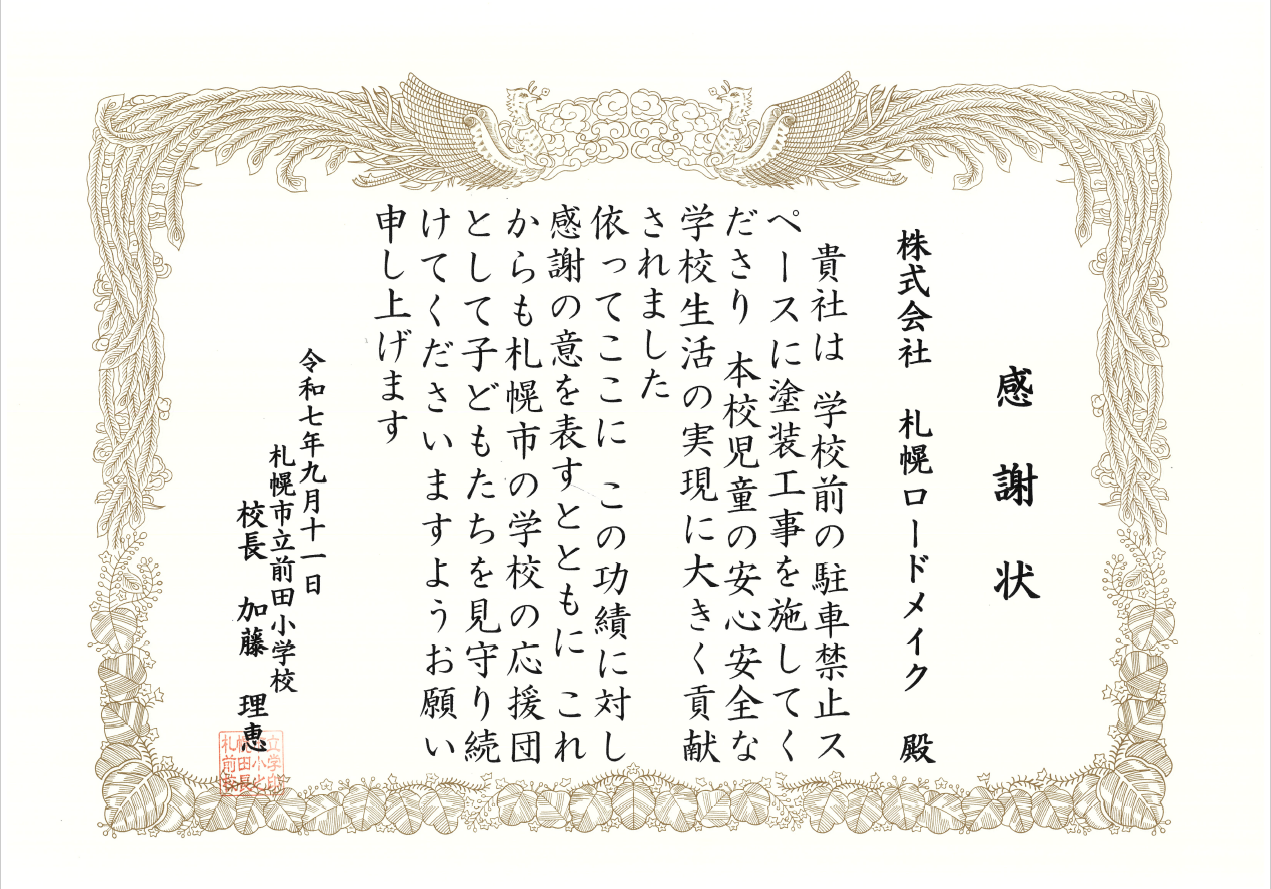 感謝状
株式会社 札幌ロードメイク 殿
貴社は 学校前の駐車禁止ス
ペースに塗装工事を施してく
ださり 本校児童の安心安全な
学校生活の実現に大きく貢献
されました
依ってここに この功績に対し
感謝の意を表すとともに これ
からも札幌市の学校の応援団
として子どもたちを見守り続
けてくださいますようお願い
申し上げます
令和七年九月十一日
札幌市立前田小学校
校長 加藤 理恵